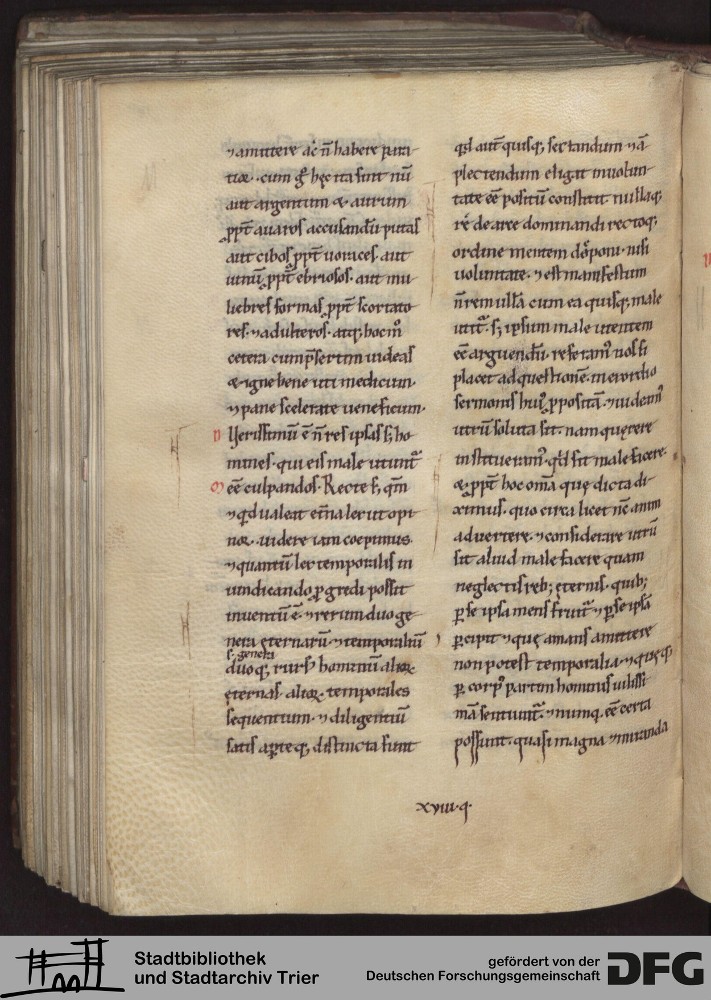 ⁊ amittere ac̄ n̄ habere para-
tior. cum g̊ hęc ita sint nū
aut argentum & aurum
ꝓpt̄ auaros accusandū putas
aut cibos ꝓpt̄ uoraces. aut
uinū ꝓpt̄ ebriosos. aut mu-
liebres formas ꝓpt̄ scortato-
res. ⁊ adulteros. atq; hoc m̊
cetera cum p̄sertim uideas
& igne bene uti medicum.
⁊ pane scelerate ueneficum.
Verissimū ē n̄ res ipsas s; ho-
mines. qui eis male utunt̄
eē culpandos. Recte s; qm̄
⁊ qd ualeat et̄na lex ut opi-
nor. uidere iam coepimus.
⁊ quantū lex temporalis in
uindicando ꝓgredi possit
inuentū ē. ⁊ rerum duo ge-
nera ęternarū ⁊ temporaliū
s. genera
duoq; rurs᷒ hominū alioꝝ
ęternas. alioꝝ. temporales
sequentium. ⁊ diligentiū
satis aꝑteq; distincta sunt
qd aut̄ quisq; sectandum ⁊ ā-
plectendum eligat in uolun-
tate eē positū constitit nullaq;
rē de arce dominandi rectoq;
ordine mentem dēponi. nisi
uoluntate. ⁊ est manifestum
n̄ rem ullā cum ea quisq; male
utit̄. s; ipsum male utentem
eē arguendū. referam᷒ nos si
placet ad questionē. in exordio
sermonis hui᷒ ꝓpositā. ⁊ uideam᷒
utrū soluta sit. nam quęrere
institueram᷒. qd sit male facere.
& ꝓpt̄ hoc om̄a quę dicta di-
ximus. quo circa licet nc̄ anim
aduertere. ⁊ considerare utrū
sit aliud male facere quam
neglectis reb; ęternis. quib;
ꝑ se ipsa mens fruit̄ ⁊ ꝑ se ipsā
ꝑcipit ⁊ quę amans amittere
non potest temporalia ⁊ quęq;
ꝑ corp᷒ partim hominis uilissi-
mā sentiunt̄. ⁊ numq. eē certa
possunt. quasi magna ⁊ miranda
xviii. q.
Stadtbibliothek
und Stadtarchiv Trier
gefördert von der
Deutschen Forschungsgemeinschaft
DFG